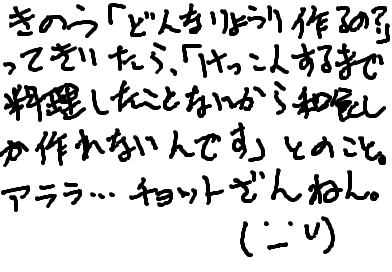 きのう「どんなりょうり作るの?」
ってきいたら、「けっこんするまで
料理したことないから和食し
か作れないんです」とのこと。
アララ…チョットざんねん。
(∵∪)